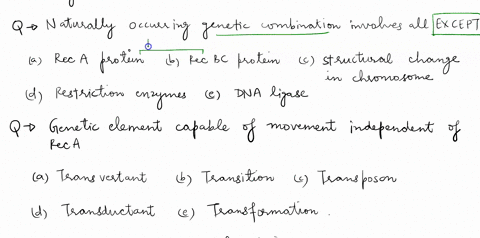 Q → Naturally occurring genetic combination involves all EXCEPT
(a) Rec A protein (b) Rec BC protein (c) structural change
in chromosome
(d) Restriction enzymes (e) DNA ligase
Q → Genetic element capable of movement independent of
Rec A
(a) Transvertant (b) Transition (c) Transposon
(d) Transductant (e) Transformation.